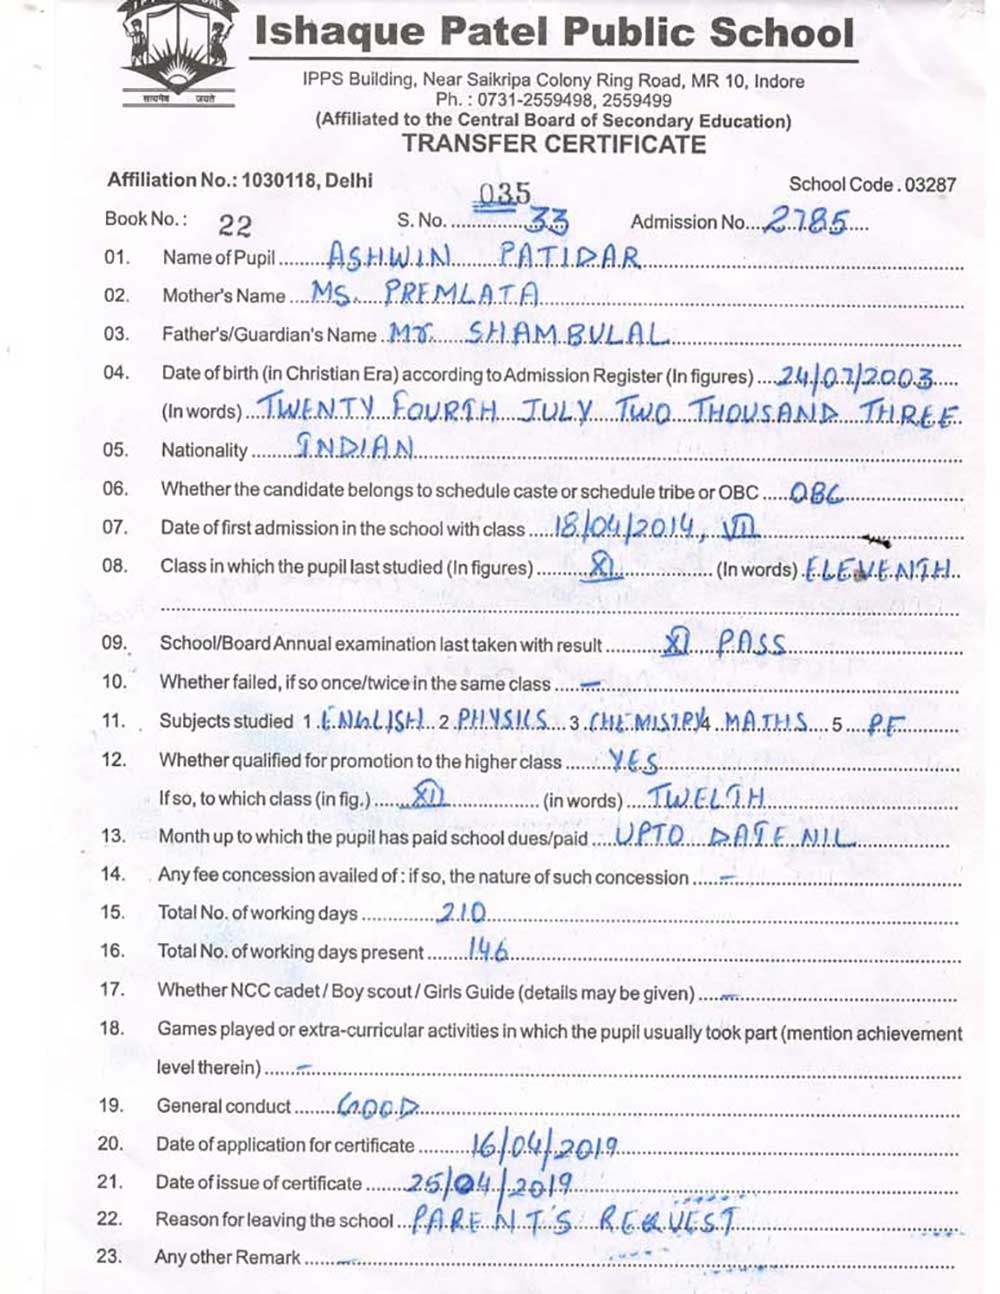 Ishaque Patel Public School
सत्यमेव जयते
IPPS Building, Near Saikripa Colony Ring Road, MR 10, Indore
Ph. : 0731-2559498, 2559499
(Affiliated to the Central Board of Secondary Education)
TRANSFER CERTIFICATE
Affiliation No.: 1030118, Delhi School Code . 03287
035
Book No.: 22 S. No. 33 Admission No. 2785
01. Name of Pupil ASHWIN PATIDAR
02. Mother's Name MS. PREMLATA
03. Father's/Guardian's Name Mr. SHAMBULAL
04. Date of birth (in Christian Era) according to Admission Register (In figures) 24/07/2003
(In words) TWENTY FOURTH JULY TWO THOUSAND THREE
05. Nationality INDIAN
06. Whether the candidate belongs to schedule caste or schedule tribe or OBC OBC
07. Date of first admission in the school with class 18/04/2014, VII
08. Class in which the pupil last studied (In figures) XI (In words) ELEVENTH
09. School/Board Annual examination last taken with result XI PASS
10. Whether failed, if so once/twice in the same class –
11. Subjects studied 1 ENGLISH 2 PHYSICS 3 CHEMISTRY 4 MATHS 5 PE
12. Whether qualified for promotion to the higher class YES
If so, to which class (in fig.) XII (in words) TWELTH
13. Month up to which the pupil has paid school dues/paid UPTO DATE NIL
14. Any fee concession availed of : if so, the nature of such concession –
15. Total No. of working days 210
16. Total No. of working days present 146
17. Whether NCC cadet / Boy scout / Girls Guide (details may be given) –
18. Games played or extra-curricular activities in which the pupil usually took part (mention achievement
level therein) –
19. General conduct GOOD
20. Date of application for certificate 16/04/2019
21. Date of issue of certificate 25/04/2019
22. Reason for leaving the school PARENT'S REQUEST
23. Any other Remark –